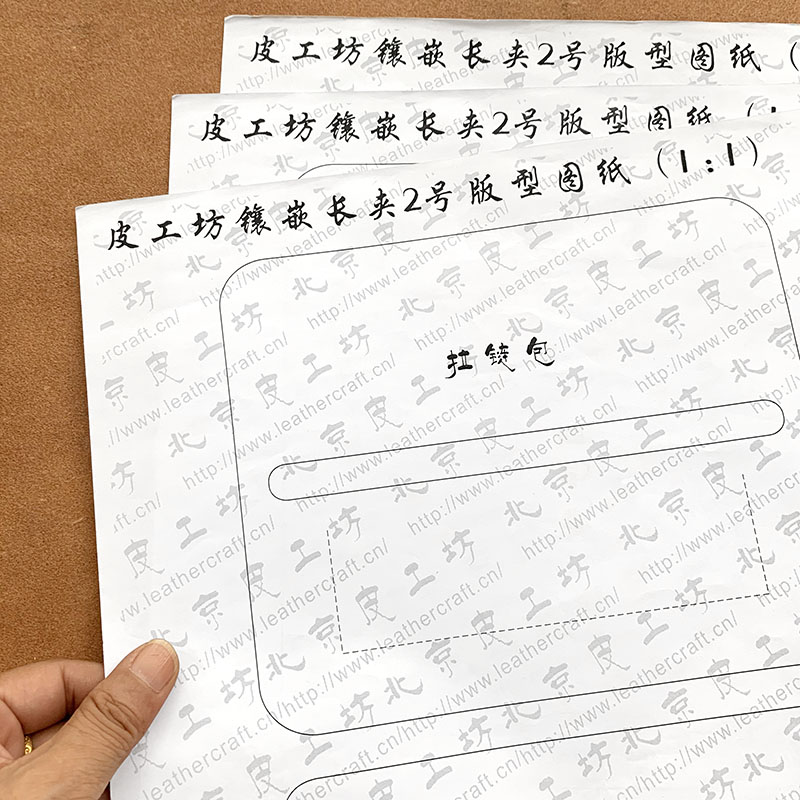 皮工坊镶嵌长夹2号版型图纸（
皮工坊镶嵌长夹2号版型图纸（1
皮工坊镶嵌长夹2号版型图纸（1:1）
拉链包
北京皮工坊
http://www.leathercraft.cn/